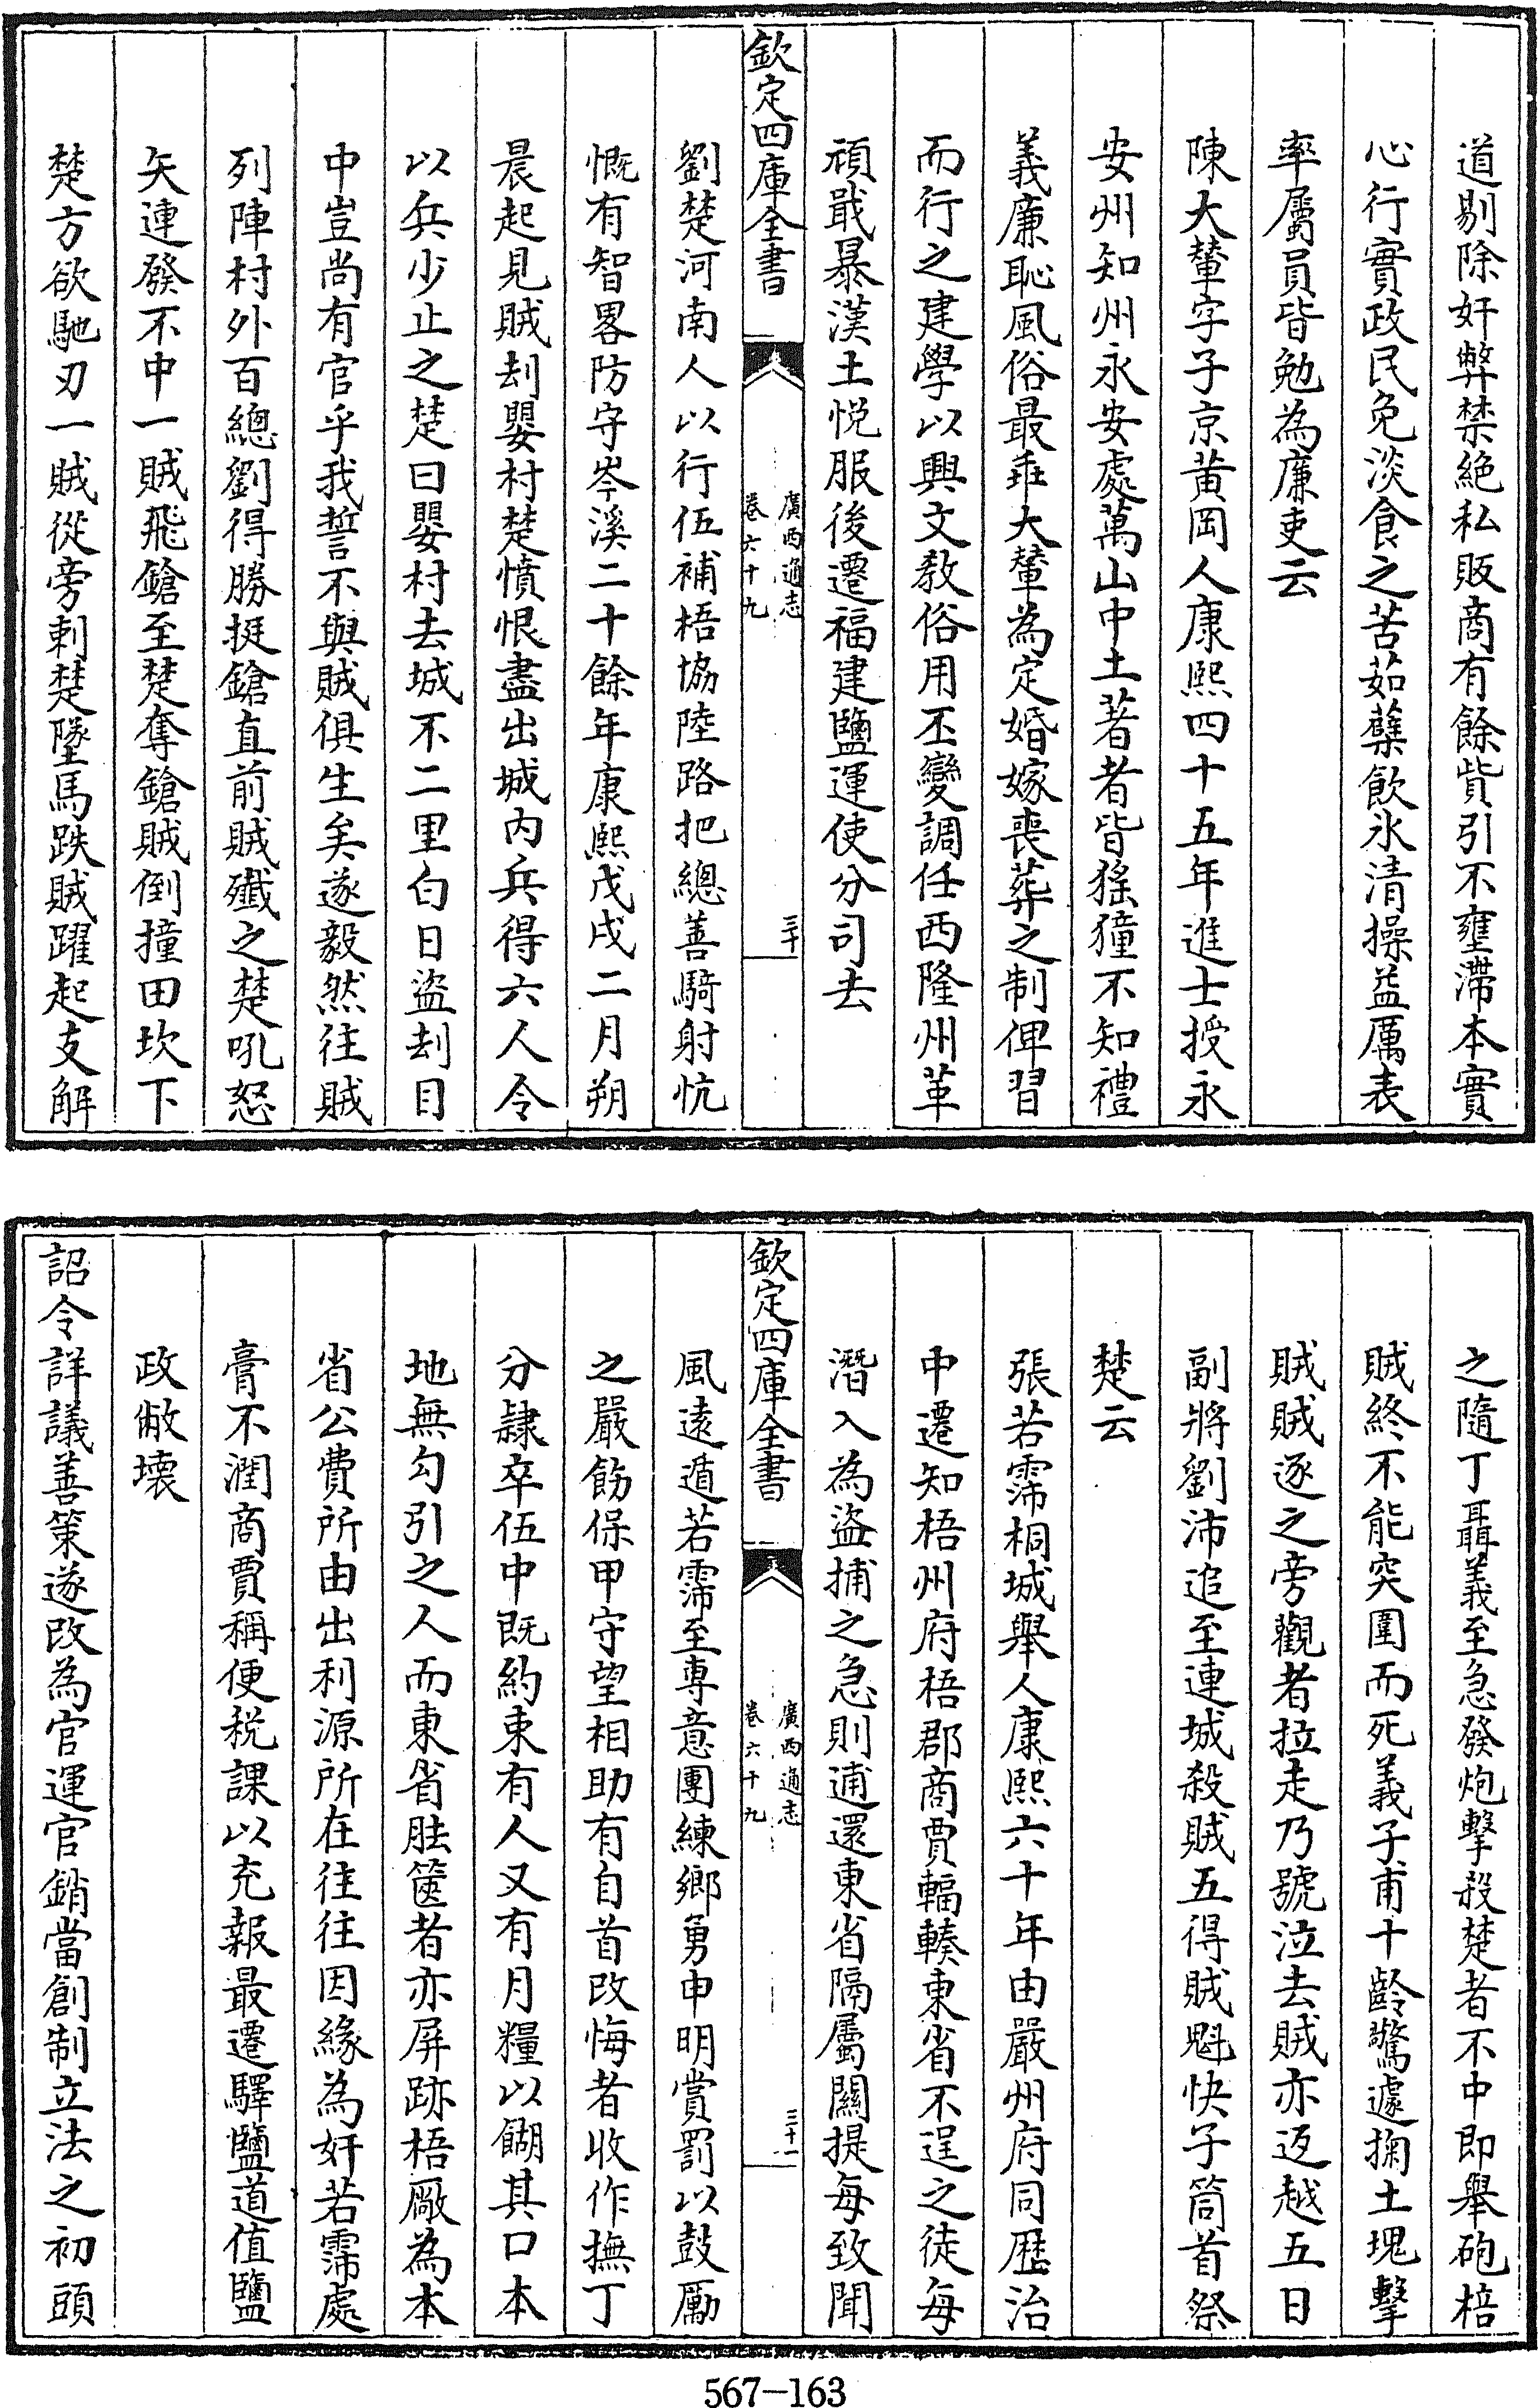 道剔除奸弊禁絕私販商有餘貲引不壅滯本實
心行實政民免淡食之苦茹蘖飲氷清操益厲表
率屬員皆勉為廉吏云
陳大輦字子京黃岡人康熙四十五年進士授永
安州知州永安處萬山中土著者皆猺獞不知禮
義廉恥風俗最乖大輦為定婚嫁喪葬之制俾習
而行之建學以興文教俗用丕變調任西隆州革
頑戢暴漢土悅服後遷福建鹽運使分司去
欽定四庫全書
廣西通志
卷六十九
三十
劉楚河南人以行伍補梧協陸路把總善騎射忼
慨有智畧防守岑溪二十餘年康熙戊戌二月朔
晨起見賊刦嬰村楚憤恨盡出城內兵得六人令
以兵少止之楚曰嬰村去城不二里白日盜刦目
中豈尚有官乎我誓不與賊俱生矣遂毅然往賊
列陣村外百總劉得勝挺鎗直前賊殲之楚吼怒
矢連發不中一賊飛鎗至楚奪鎗賊倒撞田坎下
楚方欲馳刃一賊從旁刺楚墜馬跌賊躍起支解
之隨丁聶義至急發炮擊殺楚者不中即舉砲棓
賊終不能突圍而死義子甫十齡驚遽掬土塊擊
賊賊逐之旁觀者拉走乃號泣去賊亦返越五日
副將劉沛追至連城殺賊五得賊魁快子筒首祭
楚云
張若霈桐城舉人康熙六十年由嚴州府同歷治
中遷知梧州府梧郡商賈輻輳東省不逞之徒每
潛入為盜捕之急則逋還東省隔屬關提每致聞
欽定四庫全書
廣西通志
卷六十九
三十一
風遠遁若霈至專意團練鄉勇申明賞罰以鼓厲
之嚴飭保甲守望相助有自首改悔者收作撫丁
分隷卒伍中既約束有人又有月糧以餬其口本
地無勾引之人而東省胠篋者亦屏跡梧廠為本
省公費所由出利源所在往往因緣為奸若霈處
膏不潤商賈稱便稅課以充報最遷驛鹽道值鹽
政敝壞
詔令詳議善策遂改為官運官銷當創制立法之初頭
567—163